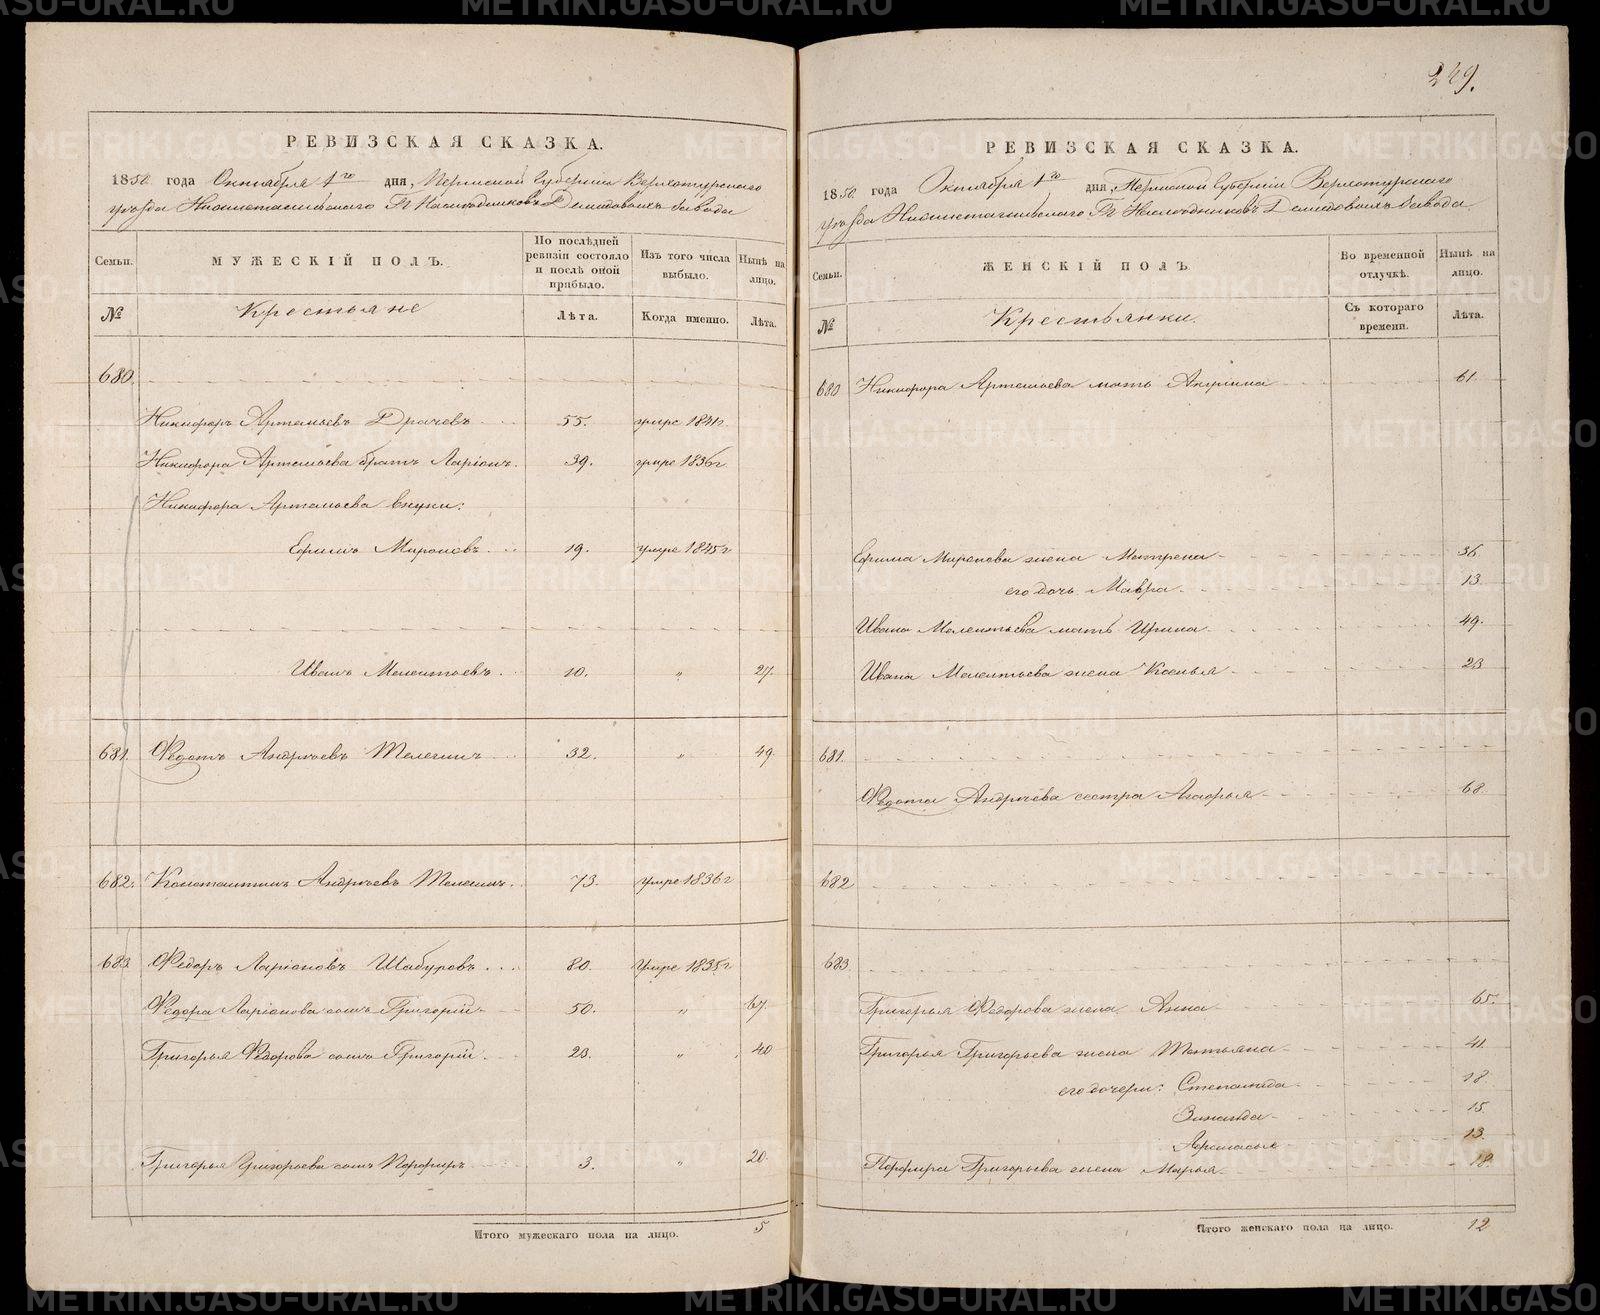 249.
РЕВИЗСКАЯ СКАЗКА.
1850 года Октября 1го дня, Пермской Губернiи Верхотурскаго
уѣзда Нижнетагильскаго Гг Наслѣдниковъ Демидовыхъ завода
Семьи.
МУЖЕСКIЙ ПОЛЪ.
По послѣдней ревизiи состояло и послѣ оной прибыло.
Изъ того числа выбыло.
Нынѣ на лицо.
№
Крестьяне
Лѣта.
Когда именно.
Лѣта.
680.
Никифоръ Артемьевъ Драчевъ 55. умре 1841г.
Никифора Артемьева братъ Ларiонъ. 39. умре 1836г
Никифора Артемьева внуки:
Ефимъ Мироновъ 19. умре 1845г
Иванъ Мелентьевъ 10. " 27.
681. Федотъ Андрѣевъ Телегинъ 32. " 49.
682. Константинъ Андрѣевъ Телегинъ. 73. умре 1836г
683. Федоръ Ларiоновъ Шабуровъ 80. умре 1835г
Федора Ларiонова сынъ Григорiй 50. " 67.
Григорья Федорова сынъ Григорiй 23. " 40
Григорья Григорьева сынъ Порфиръ 3. " 20.
Итого мужескаго пола на лицо. 5
РЕВИЗСКАЯ СКАЗКА.
1850 года Октября 1го дня, Пермской Губернiи Верхотурскаго
уѣзда Нижнетагильскаго Гг Наслѣдниковъ Демидовыхъ завода
Семьи.
ЖЕНСКIЙ ПОЛЪ.
Во временной отлучкѣ.
Нынѣ на лицо.
№
Крестьянки.
Съ котораго времени.
Лѣта.
680 Никифора Артемьева мать Акулина 61.
Ефима Миронова жена Матрена 36.
его дочь Мавра 13.
Ивана Мелентьева мать Ирина 49.
Ивана Мелентьева жена Ксенья 23
681.
Федота Андрѣева сестра Агафья 68.
682
683
Григорья Федорова жена Анна 65.
Григорья Григорьева жена Татьяна 41.
его дочери: Степанида 18.
Зинаида 15.
Афанасья 13.
Порфира Григорьева жена Марья 18.
Итого женскаго пола на лицо. 12
METRIKI.GASO-URAL.RU